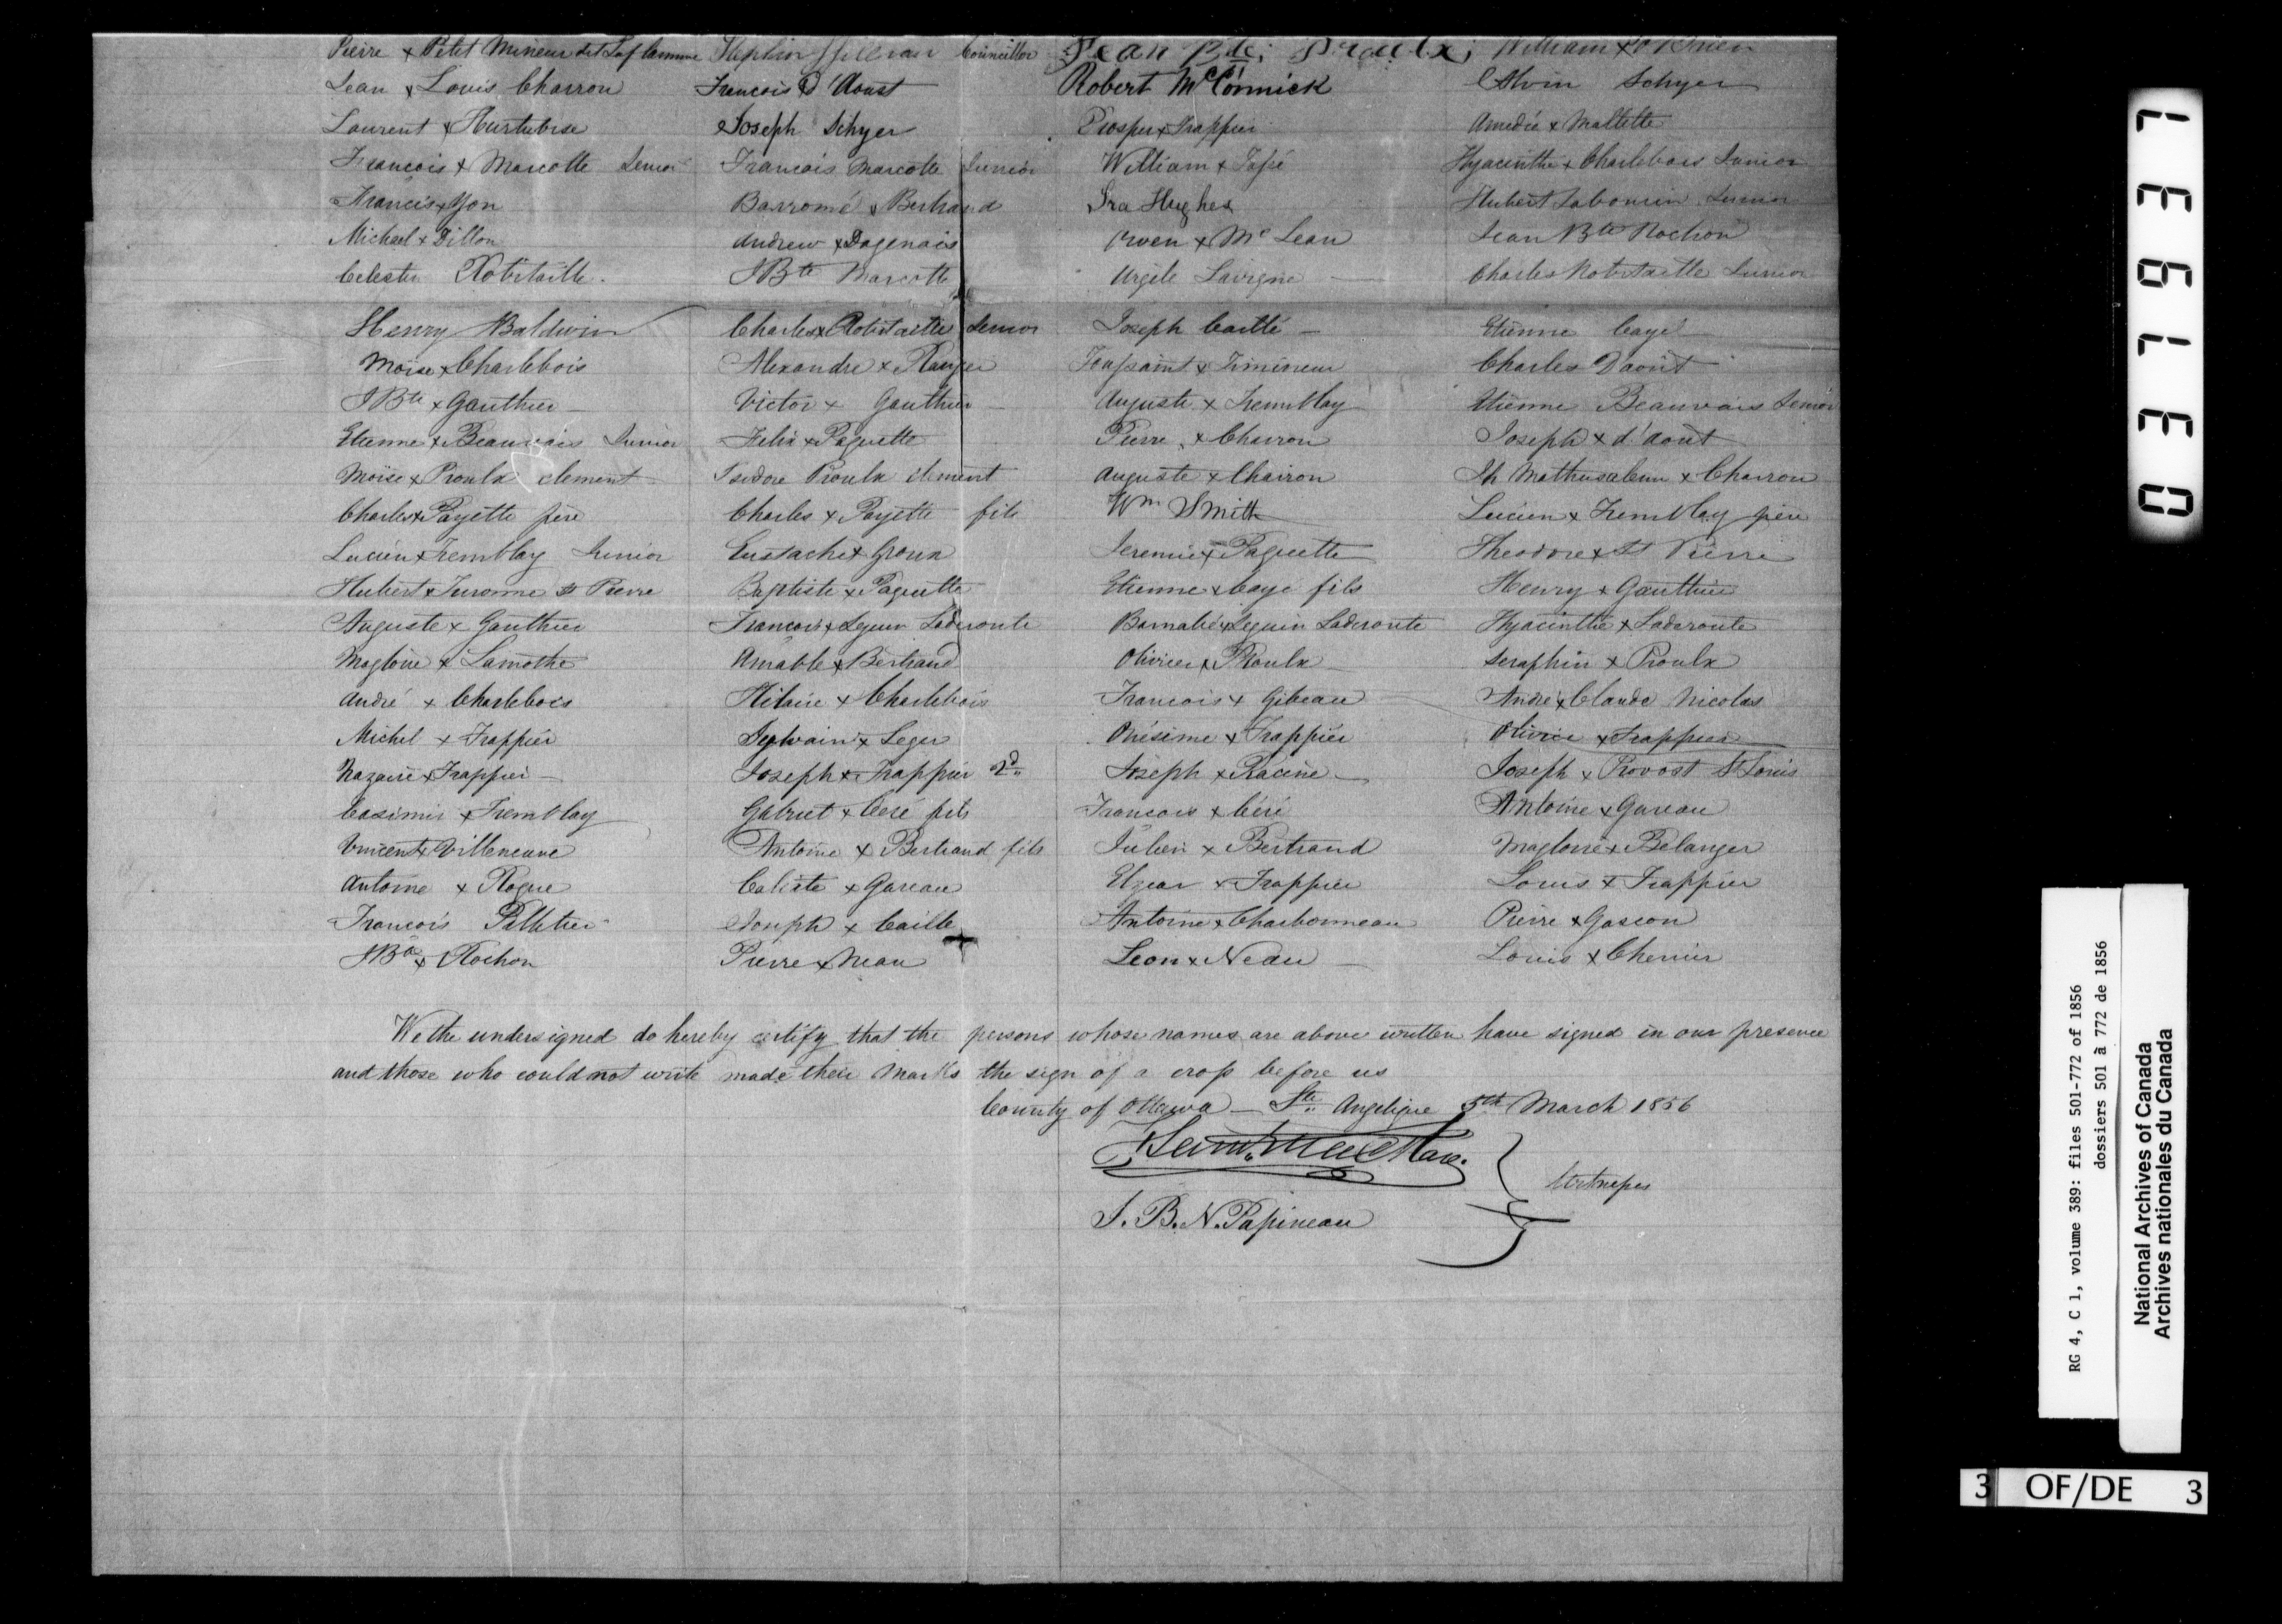 Pierre x Petit Mineur dit Laflamme Stephen Councillor Jean Bte: Proulx; William x O'Brien
Jean x Louis Charron Francois D'Aoust Robert McCormick Alvin Schyer
Laurent x Hurtubise Joseph Schyer Prosper x Trappier Amedée x Mallette
Francois x Marcotte Senior Francois Marcotte Junior William x Tassé Hyacinthe x Charlebois Junior
Francis x Yon Barromé x Bertrand Ira Hughes Hubert Sabourin Junior
Micheal x Dillon Andrew x Dagenais Owen x Mc Lean Jean Bte Rochon
Celestin Robitaille. J Bte Marcotte Urgèle Lavigne Charles Robitaille Junior
Henry Baldwin Charles x Robitaille Senior Joseph Caillé Etienne Cayé
Moise x Charlebois Alexandre x Ranger Toussaint x Timineur Charles Daoust
J Bte x Gauthier Victor x Gauthier Auguste x Tremblay Etienne Beauvais Senior
Etienne x Beauvais Junior Felix x Paquette Pierre x Charron Joseph x d'aout
Moïse x Proulx clement Isidore Proulx clement Auguste x Charron Jh Mathusalem x Charron
Charles x Payette père Charles x Payette fils Wm Smith Lucien x Tremblay père
Lucien x Tremblay Junior Eustache x Groux Jeremie x Paquette Theodore x St Pierre
Hubert x St Pierre Baptiste x Paquette Etienne x Caye fils Henry x Gauthier
Auguste x Gauthier Francois x Seguin Laderoute Barnabé x Seguin Laderoute Hyacinthe x Laderoute
Magloire x Lamothe Amable x Bertrand Olivier x Proulx Seraphin x Proulx
André x Charlebois Hilaire x Charlebois Francois x Gibeau André x Claude Nicolas
Michel x Frappier Sylvain x Leger Onésime x Frappier Olivier x Frappier
Nazaire x Frappier Joseph x Frappier 2d Joseph x Racine Joseph x Provost St Louis
Casimir x Tremblay Gabriel x Ceré fils Francois x Céré Antoine x Gareau
Vincent x Villeneuve Antoine x Bertrand fils Julien x Bertrand Magloire x Belanger
Antoine x Rogue Caliste x Gareau Elzear x Frappier Louis x Frappier
Francois Pelletier Joseph x Caille Antoine x Charbonneau Pierre x Gascon
J Bte x Rochon Pierre x Neau Leon x Neau Louis x Chenier
We the undersigned do hereby certify that the persons whose names are above written have signed in our presence
and those who could not write made their marks the sign of a cross before us
County of Ottawa — Ste Angelique 5th March 1856
Witnesses
J. B. N. Papineau
0 3 1 9 3 7
RG 4, C 1, volume 389: files 501-772 of 1856
dossiers 501 à 772 de 1856
National Archives of Canada
Archives nationales du Canada
3 OF/DE 3